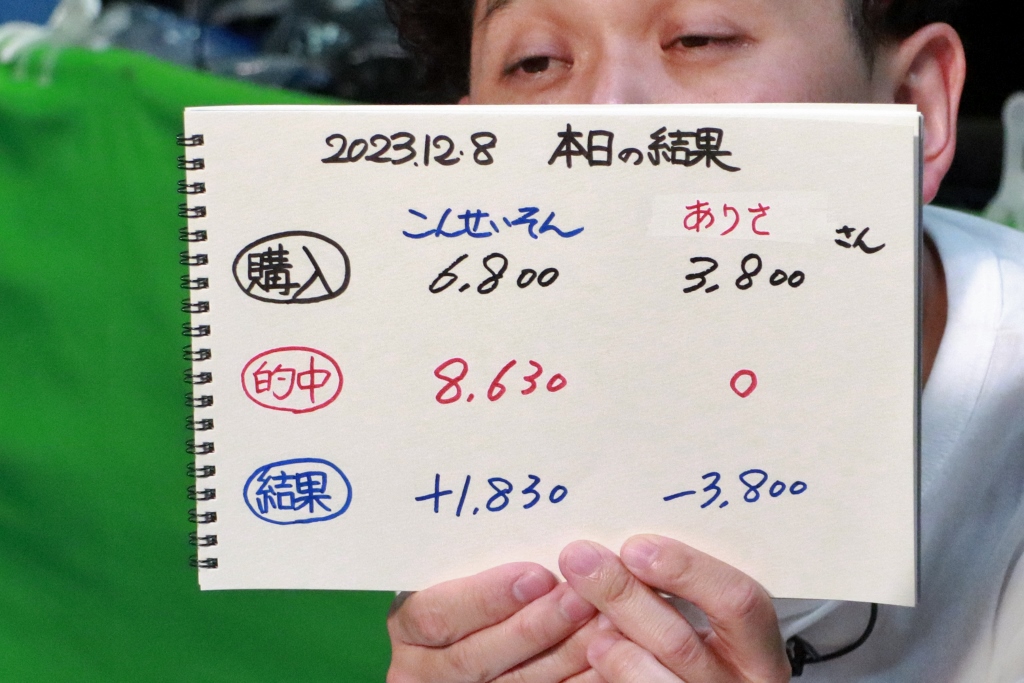 2023.12.8 本日の結果
こんせいそん ありさ さん
購入 6,800 3,800
的中 8,630 0
結果 +1,830 -3,800